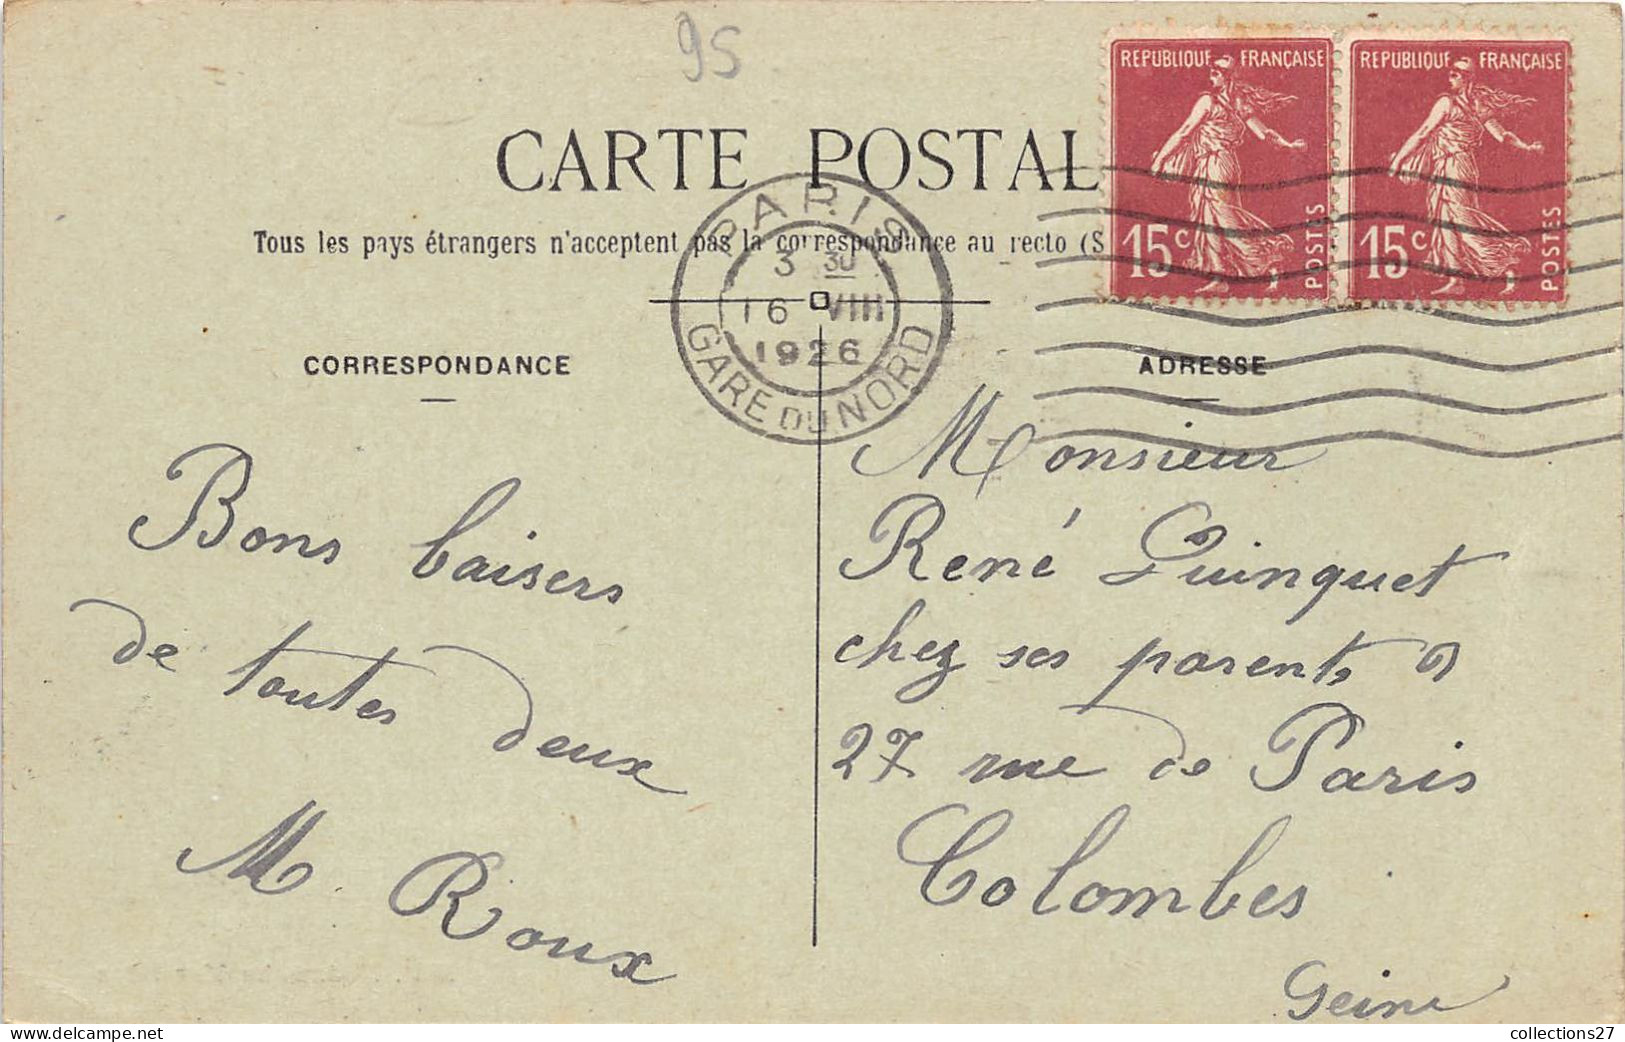 95
CARTE POSTAL
Tous les pays étrangers n'acceptent pas la correspondance au recto (S
REPUBLIQUE FRANÇAISE
15c
POSTES
REPUBLIQUE FRANÇAISE
15c
POSTES
PARIS
3 30
16 VIII
1926
GARE DU NORD
CORRESPONDANCE
ADRESSE
Bons baisers
de toutes deux
M. Roux
Monsieur
René Quinquet
chez ses parents
27 rue de Paris
Colombes
Seine
collections27